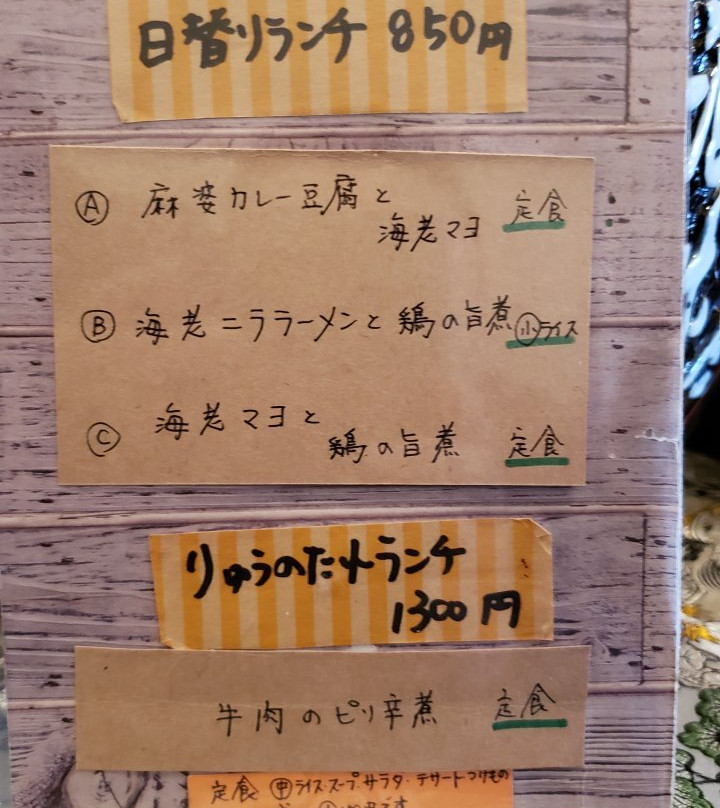 日替りランチ 850円
Ⓐ 麻婆カレー豆腐と
海老マヨ 定食
Ⓑ 海老ニララーメンと鶏の旨煮 ㊙ライス
Ⓒ 海老マヨと
鶏の旨煮 定食
りゅうのたyランチ
1300円
牛肉のピリ辛煮 定食
定食 ㊥ライス・スープ・サラダ・デザートつけもの